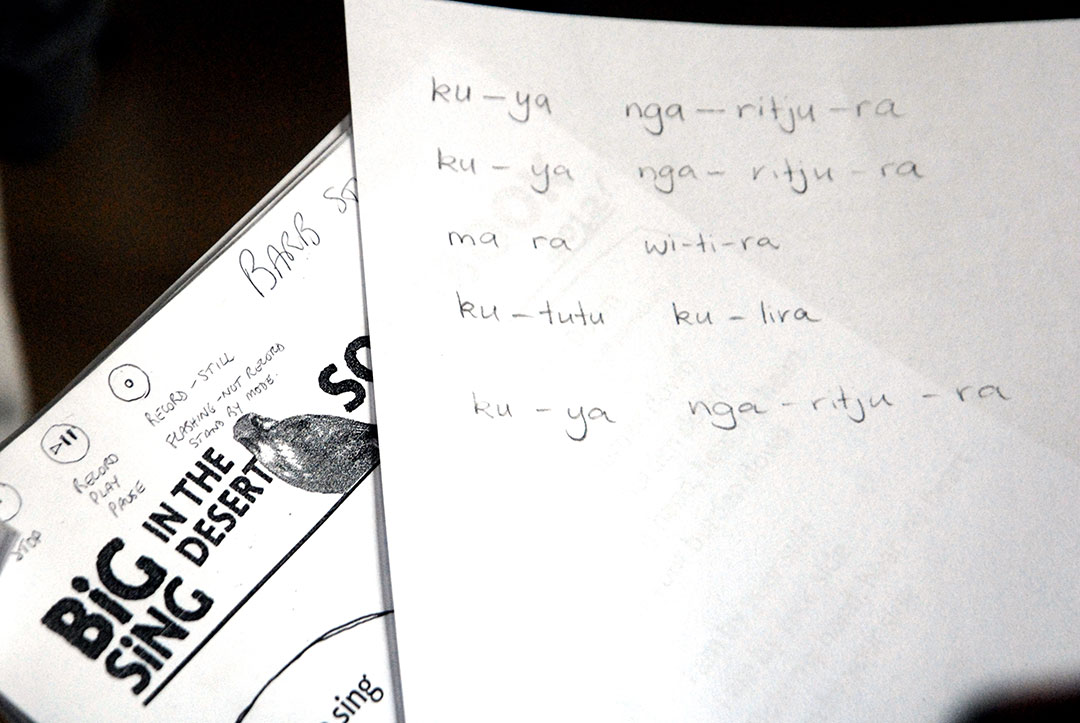 ku – ya nga – ritju – ra
ku – ya nga – ritju – ra
ma ra wi-ti-ra
ku – tutu ku – lira
ku – ya nga – ritju – ra
BARB
RECORD – STILL
FLASHING – NOT RECORD
STAND BY MODE.
RECORD
PLAY
PAUSE
STOP
SO
BiG
SiNG
IN THE
DESERT
sing